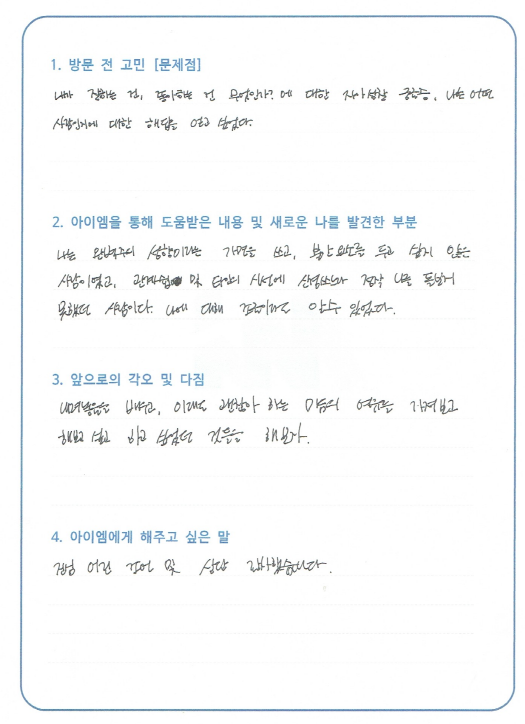 1. 방문 전 고민 [문제점]
내가 잘하는 건, 좋아하는 건 무엇인가? 에 대한 자아성찰 궁금증, 나는 어떤
사람인지에 대한 해답을 얻고 싶었다.
2. 아이엠을 통해 도움받은 내용 및 새로운 나를 발견한 부분
나는 완벽주의 성향이라는 가면을 쓰고, 불안요소를 두고 싶지 않은
사람이였고, 관계 및 타인의 시선에 신경쓰느라 정작 나를 돌보지
못했던 사람이다. 나에 대해 조금이라도 알 수 있었다.
3. 앞으로의 각오 및 다짐
내려놓음을 배우고, 이래도 괜찮아 하는 마음의 여유를 가져보고
해보고 싶고 하고 싶었던 것들을 해보자.
4. 아이엠에게 해주고 싶은 말
진심 어린 조언 및 상담 감사했습니다.